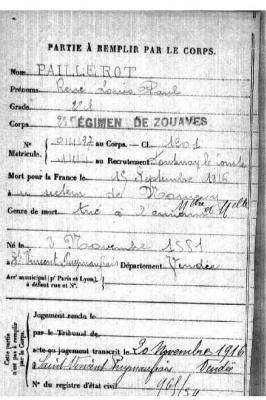 PARTIE À REMPLIR PAR LE CORPS.
Nom PAILLEROT
Prénoms René Louis Paul
Grade
Corps RÉGIMENT DE ZOUAVES
N° au Corps. — Cl. 1901
Matricule. au Recrutement Fontenay le Comte
Mort pour la France le Septembre 1916
secteur de
Genre de mort Tué à l'ennemi
Né le 3 Novembre 1881
St Vincent Puymaufrais Département Vendée
Arr municipal (pr Paris et Lyon), à défaut rue et N°.
Cette partie n'est pas à remplir par le Corps.
Jugement rendu le
par le Tribunal de
acte ou jugement transcrit le 20 Novembre 1916
Saint Vincent Puymaufrais Vendée
N° du registre d'état civil